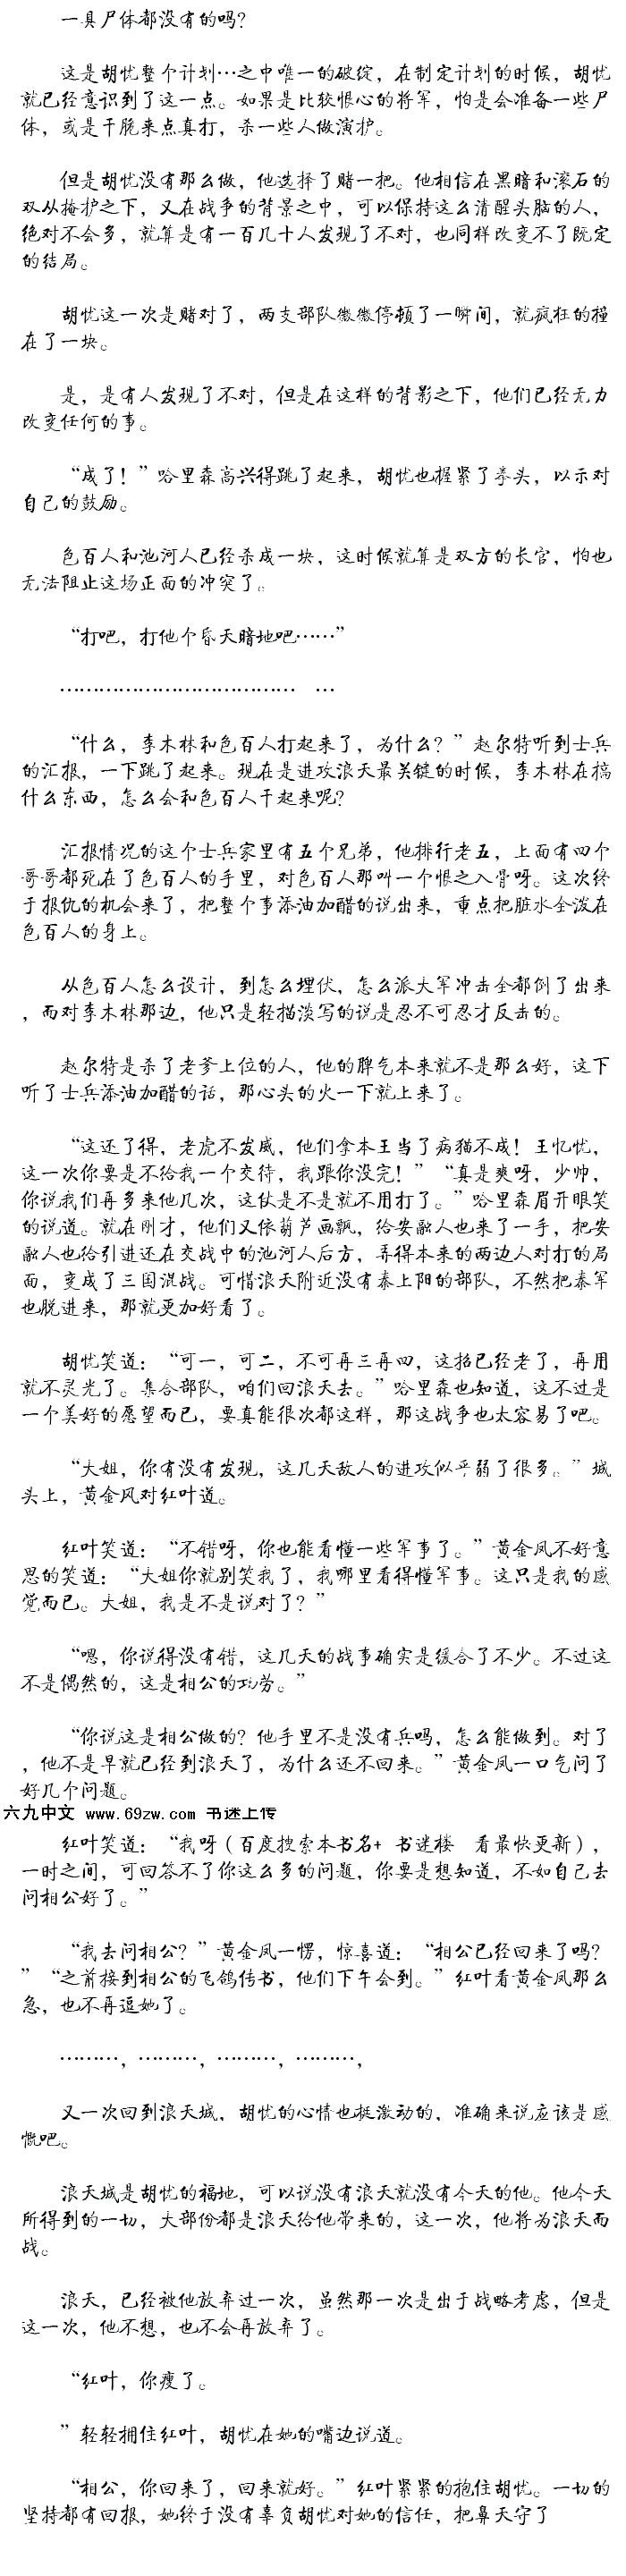 一具尸体都没有的吗？
这是胡忧整个计划…之中唯一的破绽，在制定计划的时候，胡忧
就已经意识到了这一点。如果是比较恨心的将军，怕是会准备一些尸
体，或是干脆来点真打，杀一些人做演护。
但是胡忧没有那么做，他选择了赌一把。他相信在黑暗和滚石的
双从掩护之下，又在战争的背景之中，可以保持这么清醒头脑的人，
绝对不会多，就算是有一百几十人发现了不对，也同样改变不了既定
的结局。
胡忧这一次是赌对了，两支部队微微停顿了一瞬间，就疯狂的撞
在了一块。
是，是有人发现了不对，但是在这样的背影之下，他们已经无力
改变任何的事。
“成了！”哈里森高兴得跳了起来，胡忧也握紧了拳头，以示对
自己的鼓励。
色百人和池河人已经杀成一块，这时候就算是双方的长官，怕也
无法阻止这场正面的冲突了。
“打吧，打他个昏天暗地吧……”
……………………………… …
“什么，李木林和色百人打起来了，为什么？”赵尔特听到士兵
的汇报，一下跳了起来。现在是进攻浪天最关键的时候，李木林在搞
什么东西，怎么会和色百人干起来呢？
汇报情况的这个士兵家里有五个兄弟，他排行老五，上面有四个
哥哥都死在了色百人的手里，对色百人那叫一个恨之入骨呀。这次终
于报仇的机会来了，把整个事添油加醋的说出来，重点把脏水全泼在
色百人的身上。
从色百人怎么设计，到怎么埋伏，怎么派大军冲击全都倒了出来
，而对李木林那边，他只是轻描淡写的说是忍不可忍才反击的。
赵尔特是杀了老爹上位的人，他的脾气本来就不是那么好，这下
听了士兵添油加醋的话，那心头的火一下就上来了。
“这还了得，老虎不发威，他们拿本王当了病猫不成！王忆忧，
这一次你要是不给我一个交待，我跟你没完！”“真是爽呀，少帅，
你说我们再多来他几次，这仗是不是就不用打了。”哈里森眉开眼笑
的说道。就在刚才，他们又依葫芦画飘，给安融人也来了一手，把安
融人也给引进还在交战中的池河人后方，弄得本来的两边人对打的局
面，变成了三国混战。可惜浪天附近没有泰上阳的部队，不然把泰军
也脱进来，那就更加好看了。
胡忧笑道：“可一，可二，不可再三再四，这招已经老了，再用
就不灵光了。集合部队，咱们回浪天去。”哈里森也知道，这不过是
一个美好的愿望而已，要真能很次都这样，那这战争也太容易了吧。
“大姐，你有没有发现，这几天敌人的进攻似乎弱了很多。”城
头上，黄金凤对红叶道。
红叶笑道：“不错呀，你也能看懂一些军事了。”黄金凤不好意
思的笑道：“大姐你就别笑我了，我哪里看得懂军事。这只是我的感
觉而已。大姐，我是不是说对了？”
“嗯，你说得没有错，这几天的战事确实是缓合了不少。不过这
不是偶然的，这是相公的功劳。”
“你说这是相公做的？他手里不是没有兵吗，怎么能做到。对了
，他不是早就已经到浪天了，为什么还不回来。”黄金凤一口气问了
好几个问题。
六九中文 www.69zw.com 书迷上传
红叶笑道：“我呀（百度搜索本书名+ 书迷楼 看最快更新），
一时之间，可回答不了你这么多的问题，你要是想知道，不如自己去
问相公好了。”
“我去问相公？”黄金凤一愣，惊喜道：“相公已经回来了吗？
”“之前接到相公的飞鸽传书，他们下午会到。”红叶看黄金凤那么
急，也不再逗她了。
………，………，………，………，
又一次回到浪天城，胡忧的心情也挺激动的，准确来说应该是感
慨吧。
浪天城是胡忧的福地，可以说没有浪天就没有今天的他。他今天
所得到的一切，大部份都是浪天给他带来的，这一次，他将为浪天而
战。
浪天，已经被他放弃过一次，虽然那一次是出于战略考虑，但是
这一次，他不想，也不会再放弃了。
“红叶，你瘦了。
”轻轻拥住红叶，胡忧在她的嘴边说道。
“相公，你回来了，回来就好。”红叶紧紧的抱住胡忧。一切的
坚持都有回报，她终于没有辜负胡忧对她的信任，把鼻天守了